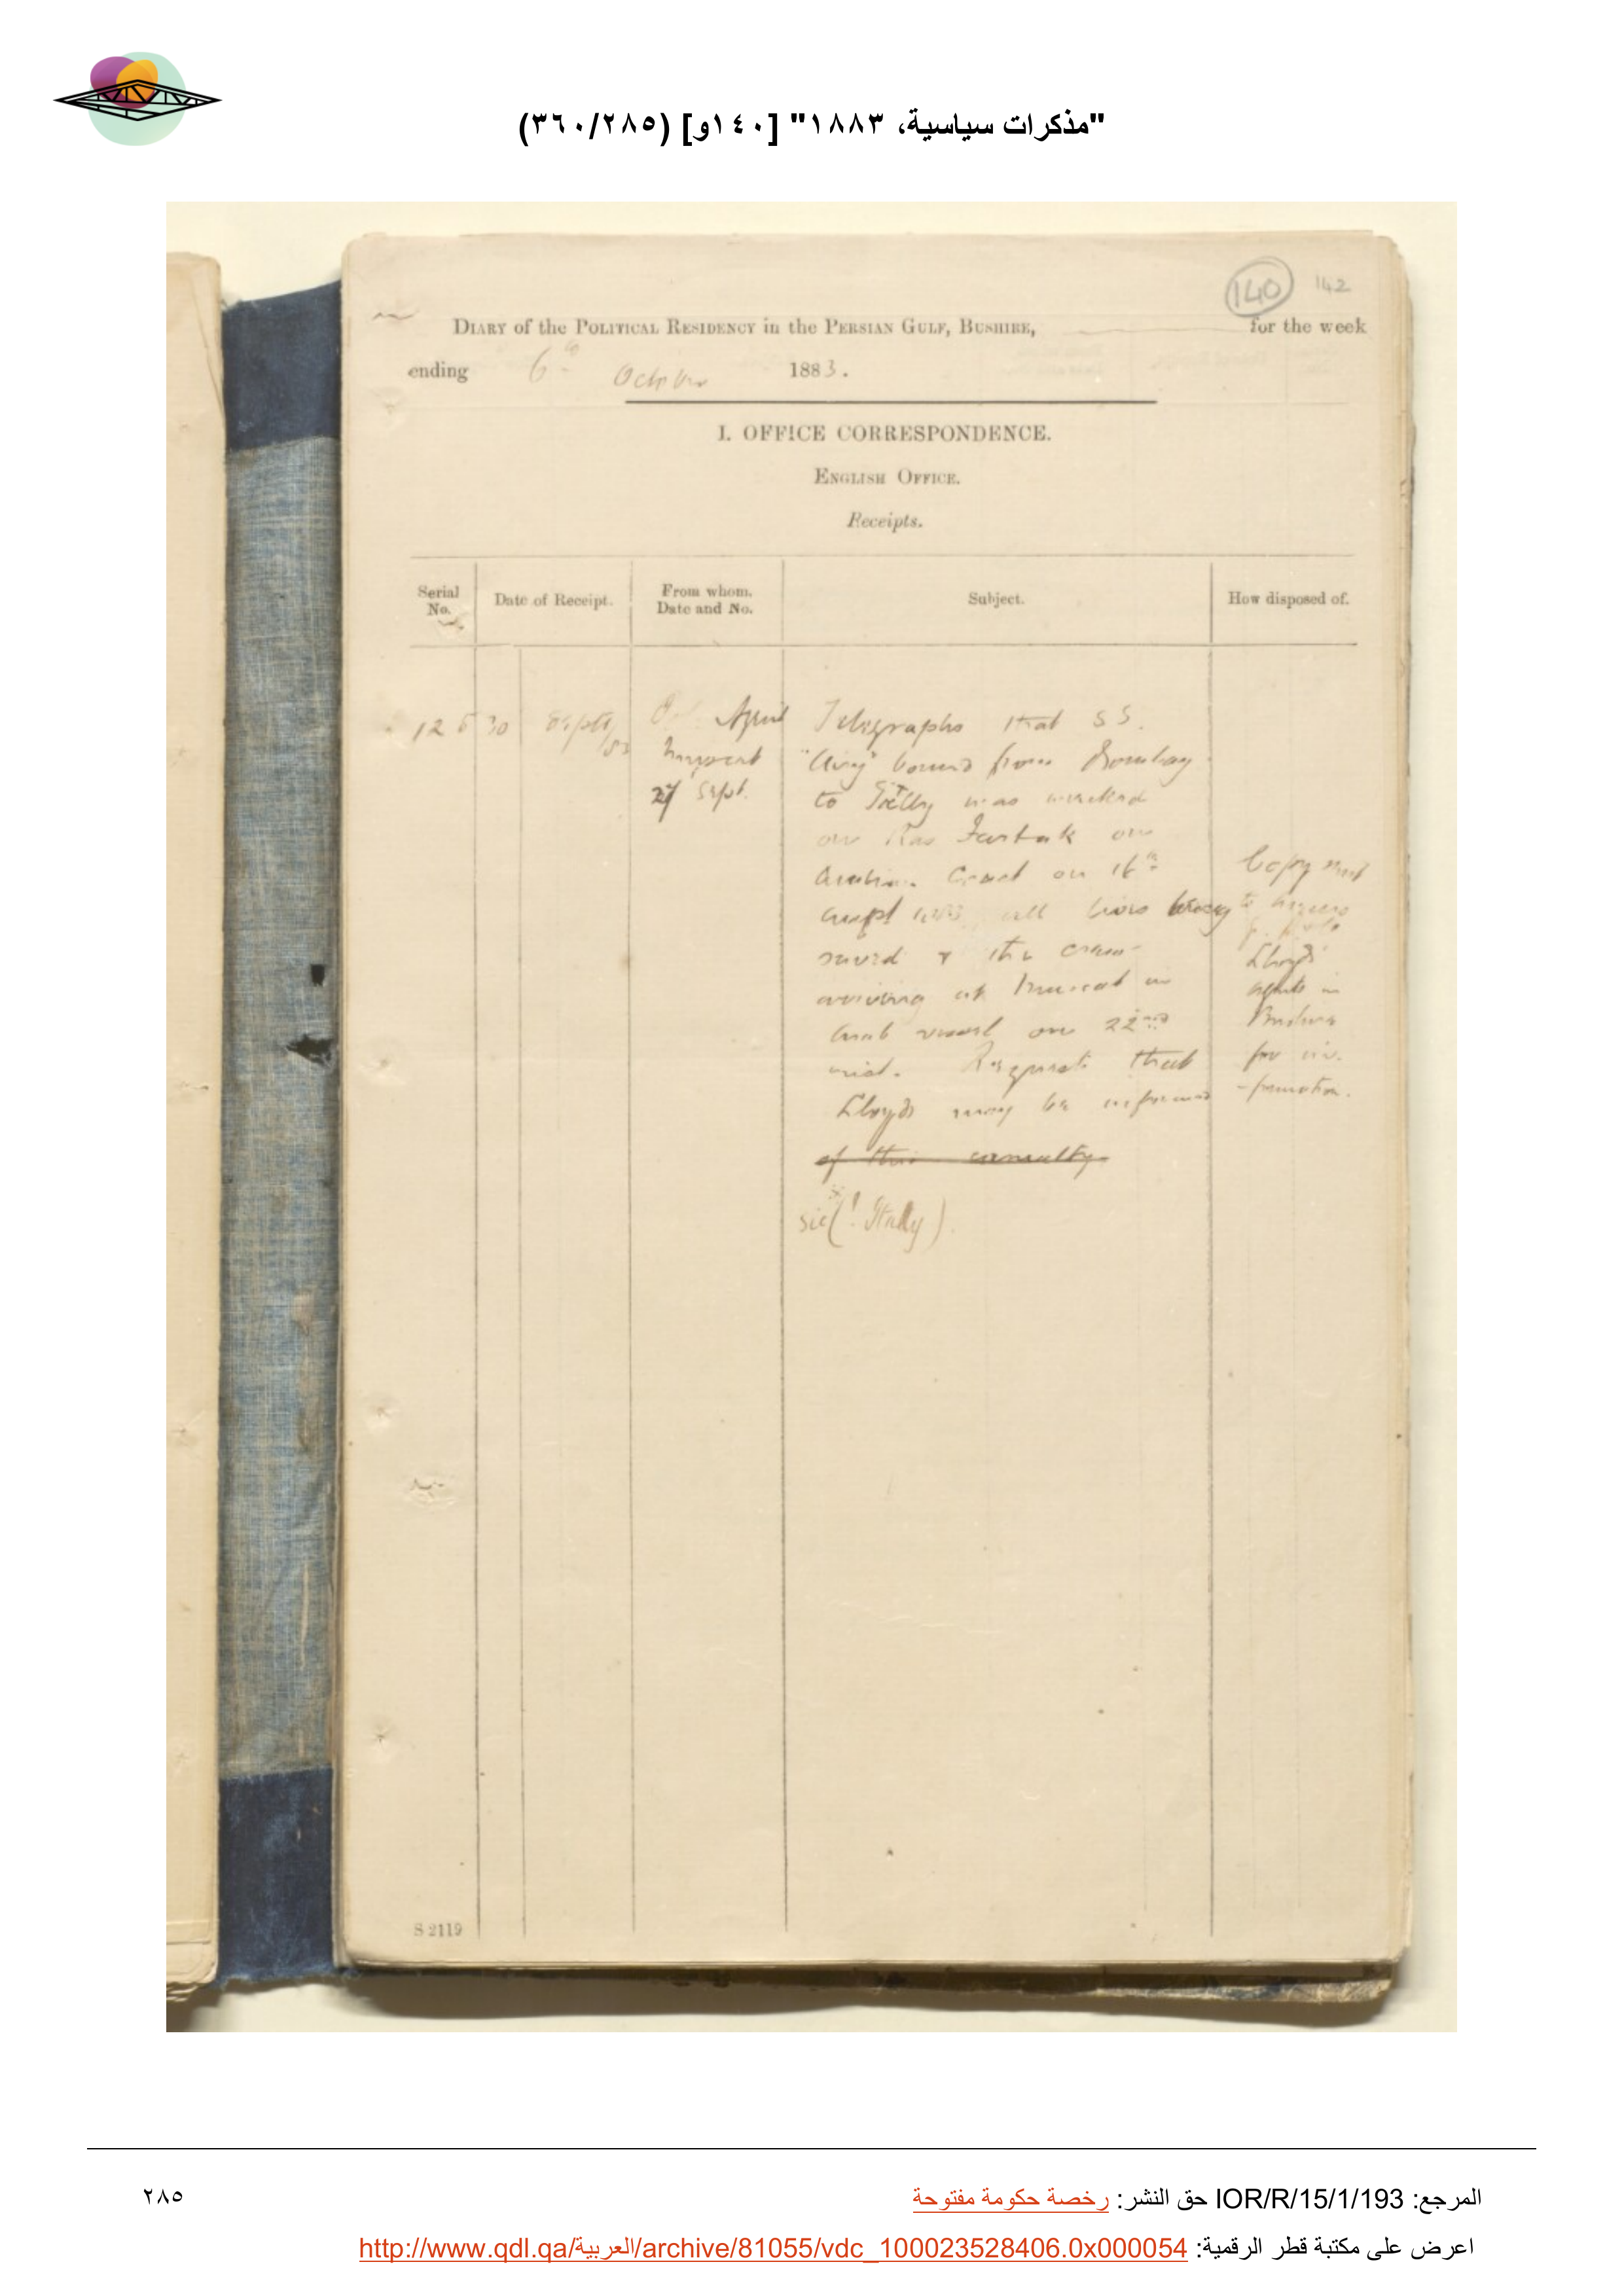 "مذكرات سياسية، ١٨٨٣" [١٤٠و] (٣٦٠/٢٨٥)
140 142
DIARY of the POLITICAL RESIDENCY in the PERSIAN GULF, BUSHIRE, for the week
ending 6th October 1883.
I. OFFICE CORRESPONDENCE.
ENGLISH OFFICE.
Receipts.
Serial No.
Date of Receipt.
From whom. Date and No.
Subject.
How disposed of.
30 Sept/83
Muscat
27 Sept.
Telegraphs that SS.
bound from Bombay
to was wrecked
on Ras Fartak on
Arabian Coast on 16th
all lives being
saved & the crew
arriving at Muscat in
Arab vessel on 22nd
inst. Requests that
Lloyds may be informed
of this casualty
sic (! Italy)
Copy sent
to
Lloyds
agents in
Bushire
for in-
-formation.
S 2119
المرجع: IOR/R/15/1/193 حق النشر: رخصة حكومة مفتوحة
٢٨٥
اعرض على مكتبة قطر الرقمية: http://www.qdl.qa/العربية/archive/81055/vdc_100023528406.0x000054